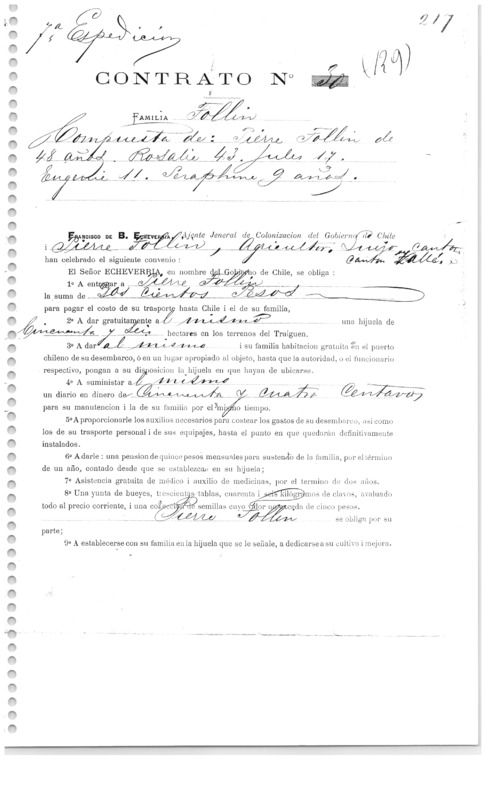 7ª Espedición
217
CONTRATO Nº 30 (129)
FAMILIA Follin
Compuesta de: Pierre Follin de
48 años. Rosalie 43. Jules 17.
Eugenie 11. Seraphine 9 años.
FRANCISCO DE B. ECHEVERRIA, Ajente Jeneral de Colonizacion del Gobierno de Chile
i Pierre Follin, Agricultor. Suizo, Canton
han celebrado el siguiente convenio : Canton Vallé.
El Señor ECHEVERRIA, en nombre del Gobierno de Chile, se obliga :
1º A entregar a Pierre Follin
la suma de Dos cientos Pesos
para pagar el costo de su trasporte hasta Chile i el de su familia,
2º A dar gratuitamente al mismo una hijuela de
Cincuenta y Seis hectares en los terrenos del Traiguen.
3º A dar al mismo i su familia habitacion gratuita en el puerto
chileno de su desembarco, ó en un lugar apropiado al objeto, hasta que la autoridad, o el funcionario
respectivo, pongan a su disposicion la hijuela en que hayan de ubicarse.
4º A suministrar al mismo
un diario en dinero de Cincuenta y cuatro Centavos
para su manutencion i la de su familia por el mismo tiempo.
5º A proporcionarle los auxilios necesarios para costear los gastos de su desembarco, asi como
los de su trasporte personal i de sus equipajes, hasta el punto en que quedarán definitivamente
instalados.
6º A darle : una pension de quince pesos mensuales para sustento de la familia, por el término
de un año, contado desde que se establezcan en su hijuela ;
7º Asistencia gratuita de médico i auxilio de medicinas, por el termino de dos años.
8º Una yunta de bueyes, trescientas tablas, cuarenta i seis kilógramos de clavos, avaluado
todo al precio corriente, i una coleccion de semillas cuyo valor no exceda de cinco pesos.
Pierre Follin se obliga por su
parte ;
9º A establecerse con su familia en la hijuela que se le señale, a dedicarse a su cultivo i mejora.